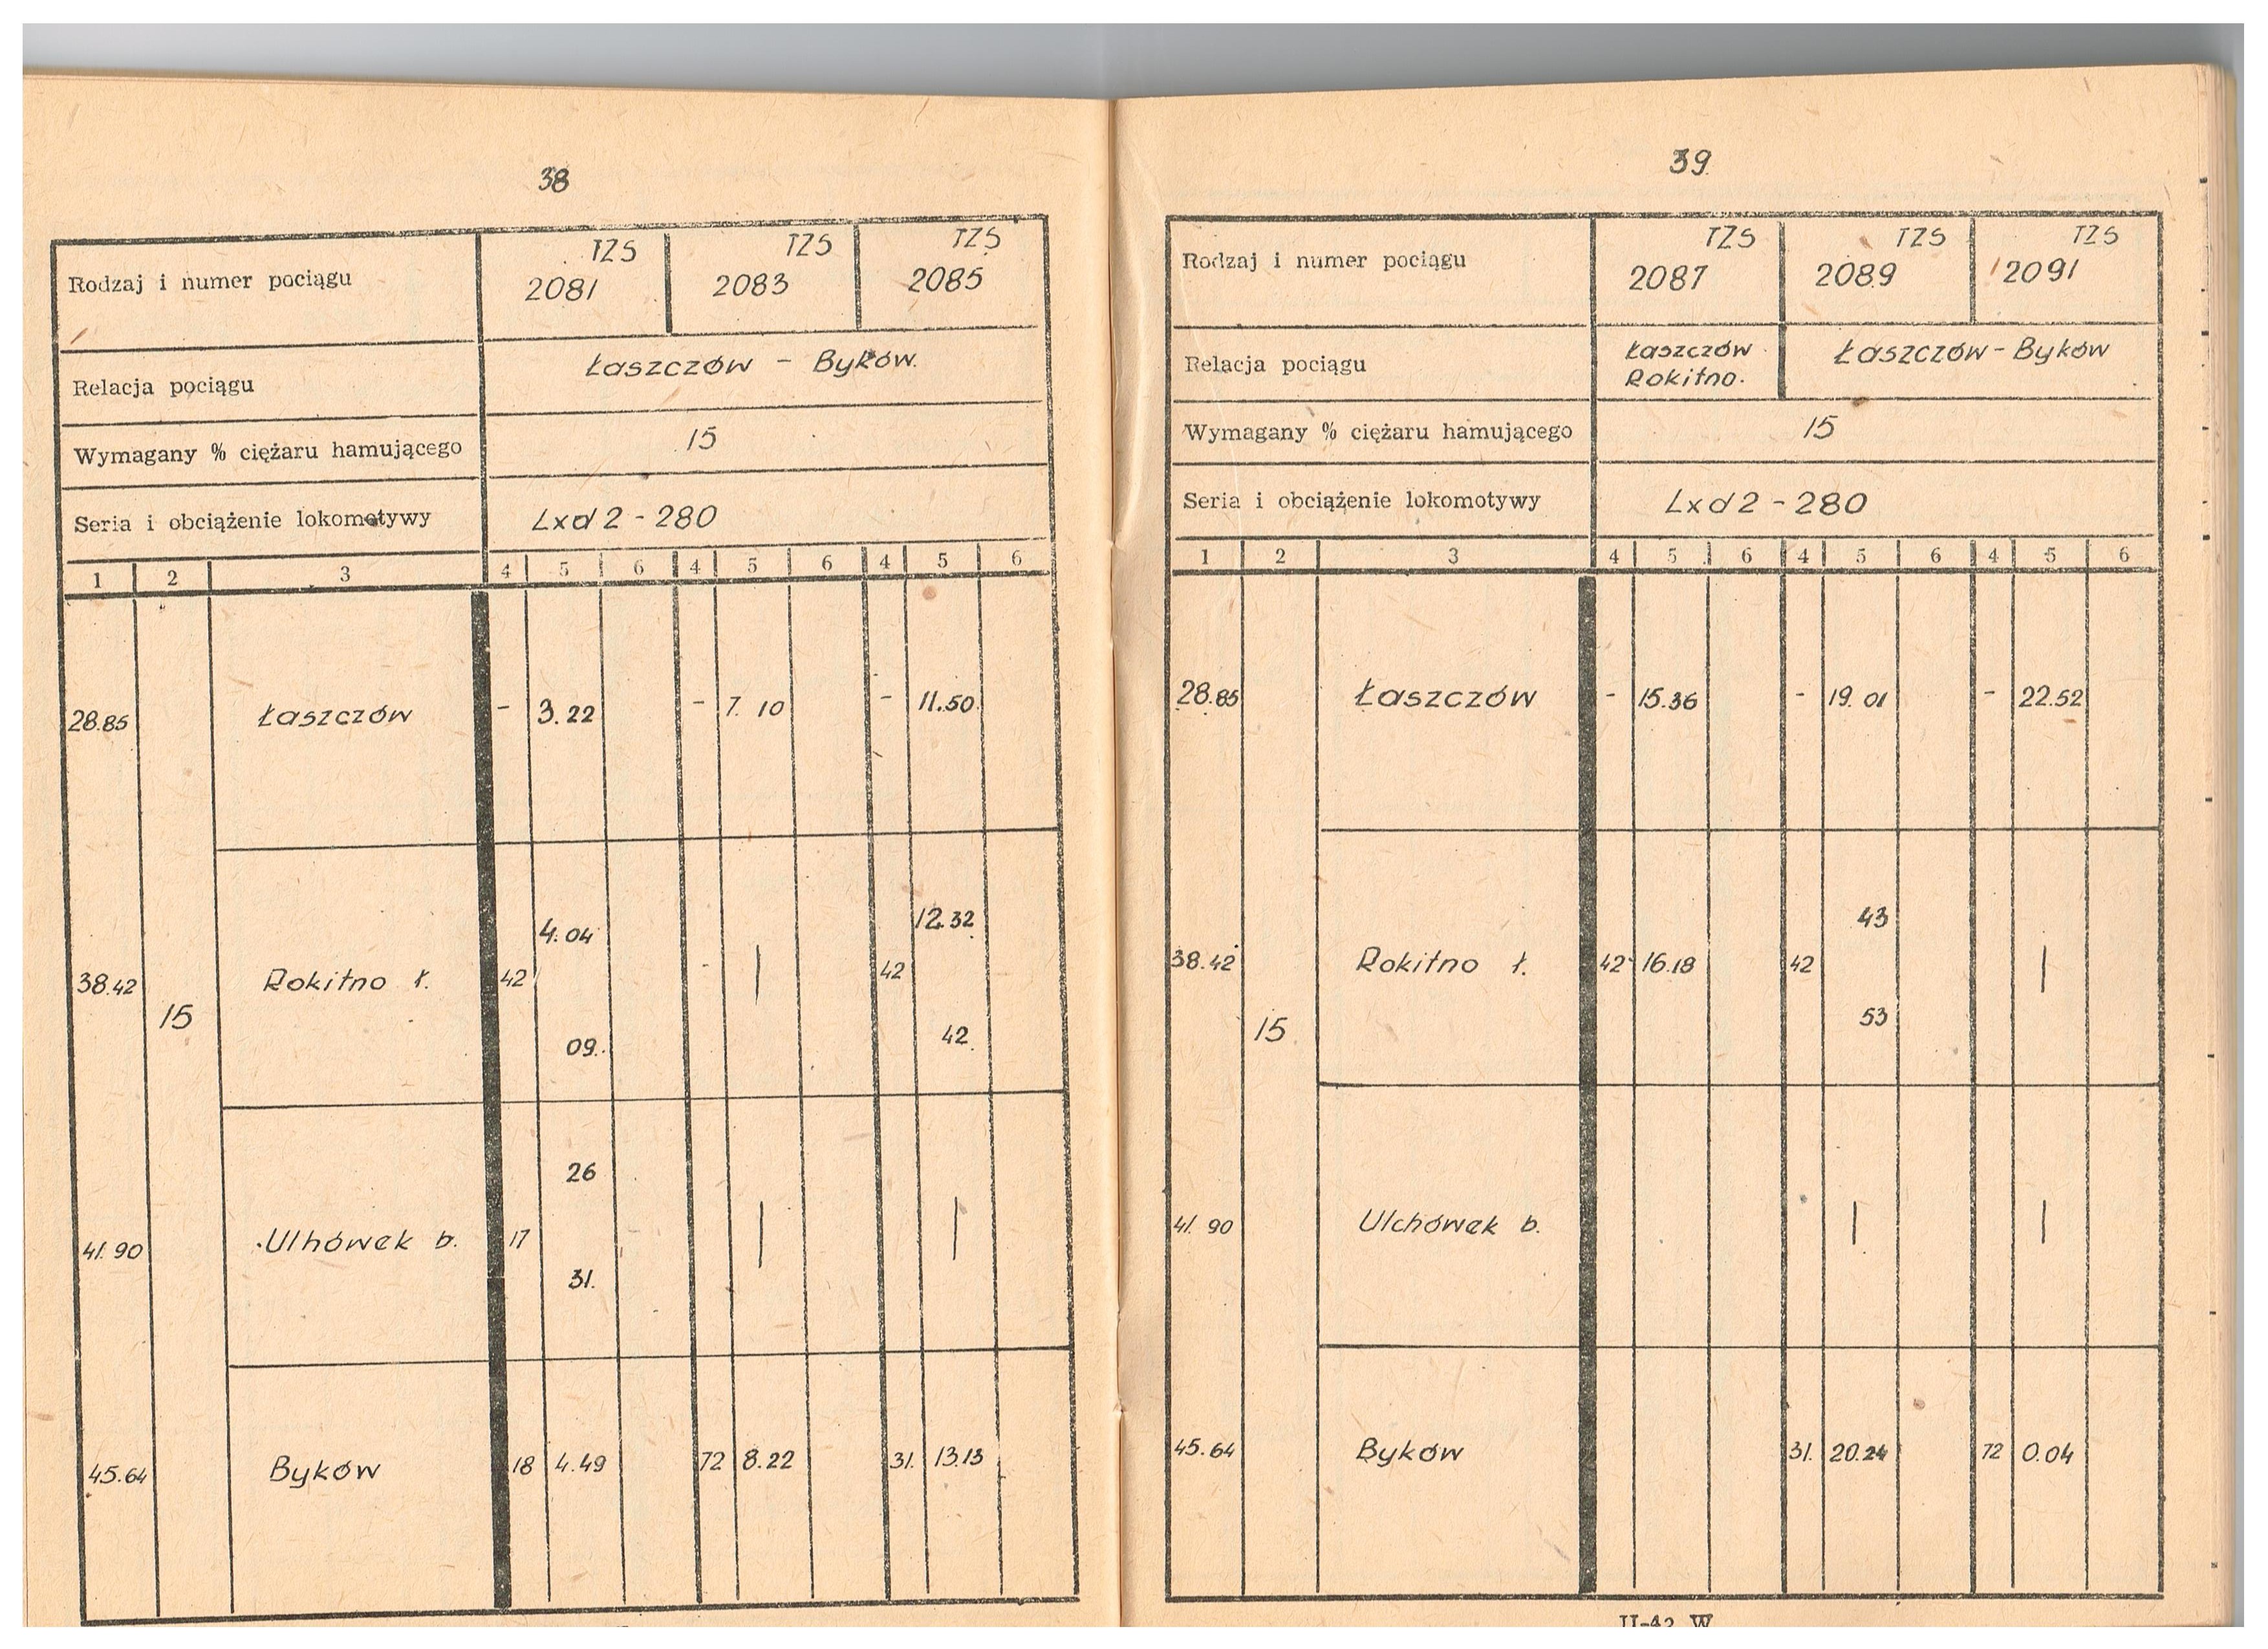 38
Rodzaj i numer pociągu TZS 2081 TZS 2083 TZS 2085
Relacja pociągu Łaszczów - Byków.
Wymagany % ciężaru hamującego 15
Seria i obciążenie lokomotywy Lxd2-280
1 2 3 4 5 6 4 5 6 4 5 6
28.85 Łaszczów - 3.22 - 7.10 - 11.50
4.04 12.32
38.42 Rokitno ł. 42 - | 42
15
09. 42
26
41.90 Ulhówek b. 17 | |
31.
45.64 Byków 18 4.49 72 8.22 31. 13.13
39
Rodzaj i numer pociągu TZS 2087 TZS 2089 TZS 2091
Relacja pociągu Łaszczów Rokitno. Łaszczów - Byków
Wymagany % ciężaru hamującego 15
Seria i obciążenie lokomotywy Lxd2-280
1 2 3 4 5 6 4 5 6 4 5 6
28.85 Łaszczów - 15.36 - 19.01 - 22.52
43
38.42 Rokitno ł. 42 16.18 42 |
15 53
41.90 Ulchówek b. | |
45.64 Byków 31. 20.24 72 0.04
II-42 W